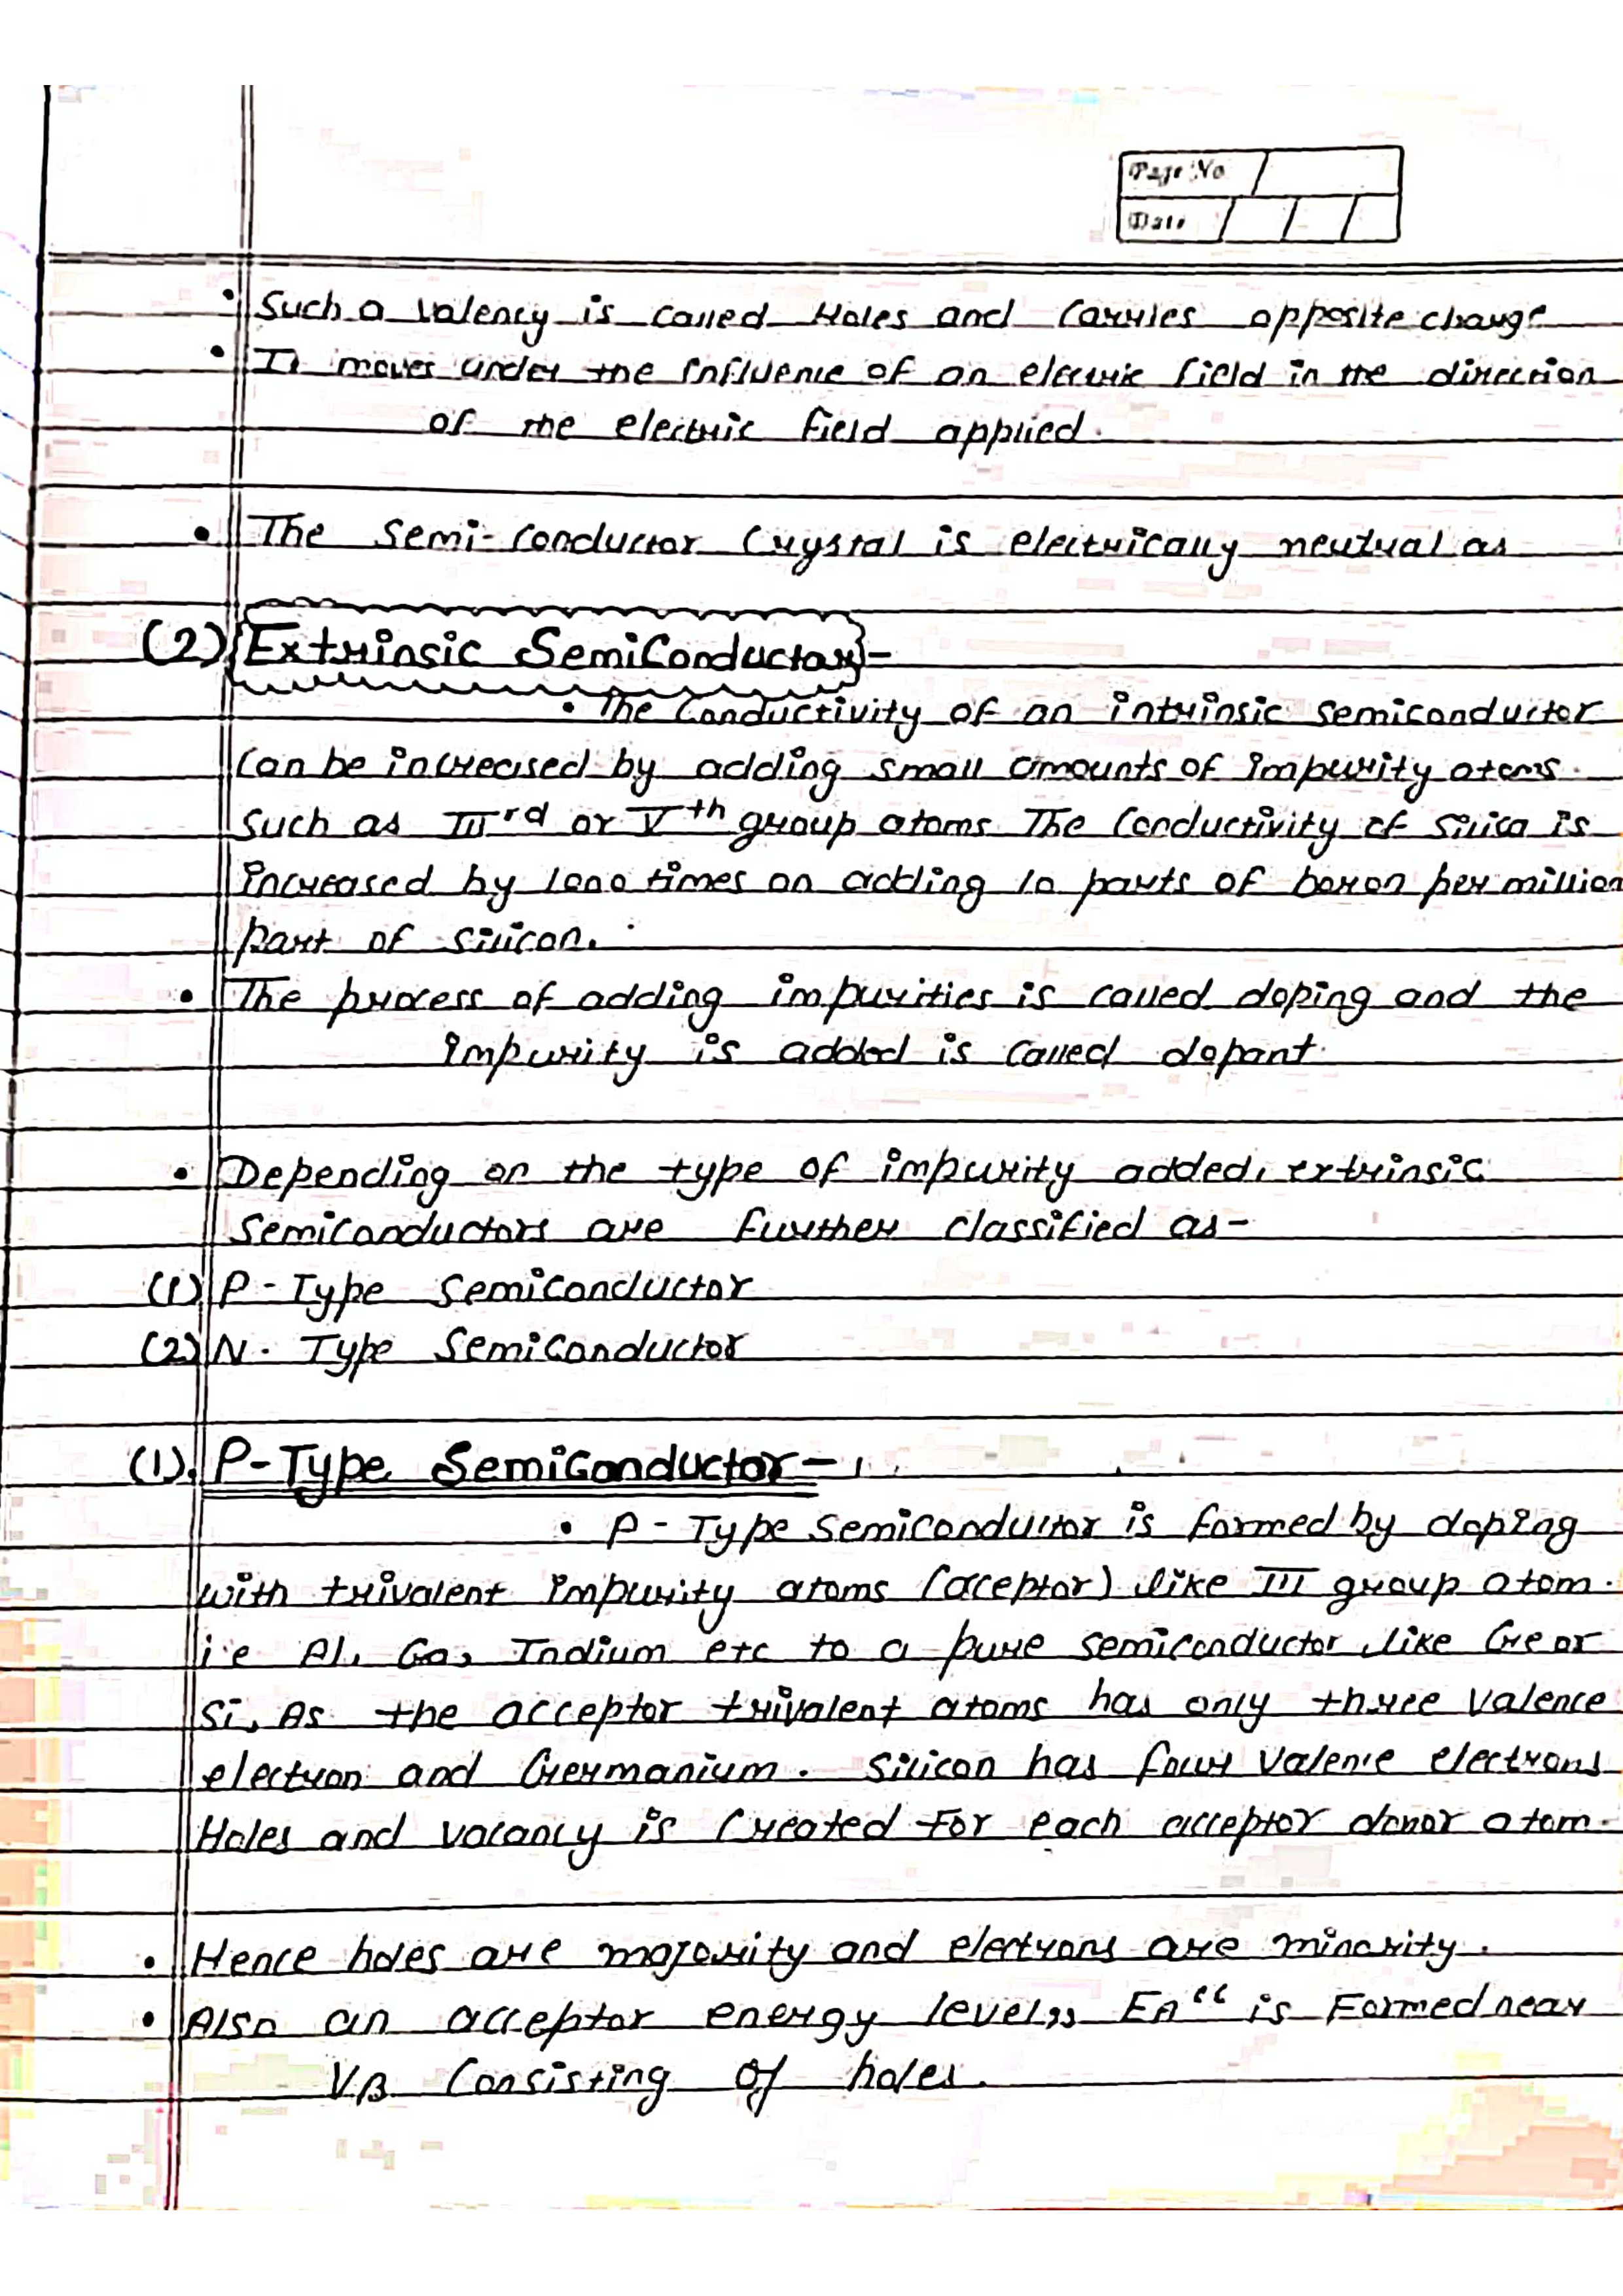 Page No
Date
• Such a valency is called Holes and carries opposite charge
• It moves under the influence of an electric field in the direction
of the electric field applied.
• The Semi-conductor Crystal is electrically neutral as
(2) Extrinsic SemiConductor-
• The Conductivity of an intrinsic semiconductor
can be increased by adding small amounts of impurity atoms.
Such as IIIrd or Vth group atoms The Conductivity of Silica is
increased by 1000 times on adding 10 parts of boron per million
part of silicon.
• The process of adding impurities is called doping and the
impurity is added is called dopant.
• Depending on the type of impurity added, extrinsic
Semiconductors are further classified as-
(1) P-Type Semiconductor
(2) N. Type SemiConductor
(1). P-Type SemiConductor-
• P-Type Semiconductor is formed by doping
with trivalent impurity atoms (aceptor) like III group atom.
i.e Al, Ga, Indium etc to a pure semiconductor like Ge or
Si, As the acceptor trivalent atoms has only three Valence
electron and Germanium. Silicon has four Valence electrons
Holes and vacancy is Created For each acceptor donor atom.
• Hence holes are majority and electrons are minority.
• Also an acceptor energy level,, EA“ is Formed near
VB Consisting of holes.